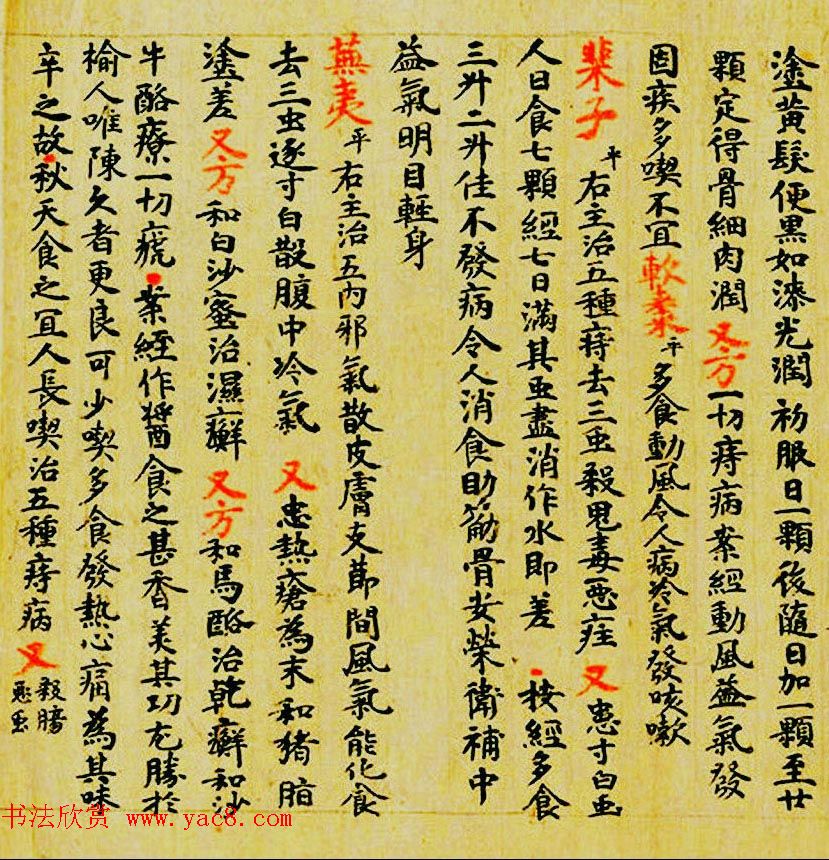 塗黄髮便黒如漆光潤初服日一顆後隨日加一顆至廿
顆定得骨細肉潤又方一切痔病案經動風益氣發
固疾多喫不冝軟棗平多食動風令人病冷氣發咳嗽
榧子平右主治五種痔去三虫殺鬼毒惡疰又患寸白虫
人日食七顆經七日滿其虫盡消作水即差按經多食
三升二升佳不發病令人消食助筋骨安榮衛補中
益氣明目輕身
蕪荑平右主治五内邪氣散皮膚支節間風氣能化食
去三虫逐寸白散腹中冷氣又患熱瘡為末和猪脂
塗差又方和白沙蜜治濕癬又方和馬酪治乾癬和沙
牛酪療一切瘡案經作醬食之甚香美其功尤勝於
榆人唯陳久者更良可少喫多食發熱心痛為其味
辛之故秋天食之冝人長喫治五種痔病又殺腸惡虫
书法欣赏 www.yac8.com